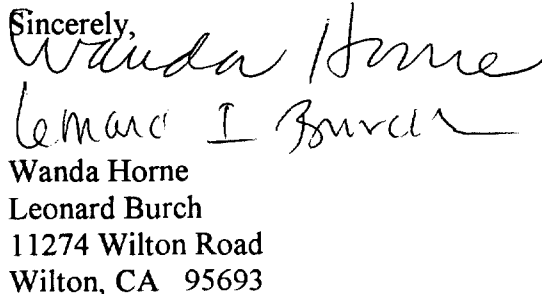 Sincerely,
Wanda Horne
Leonard I Burch
Wanda Horne
Leonard Burch
11274 Wilton Road
Wilton, CA 95693